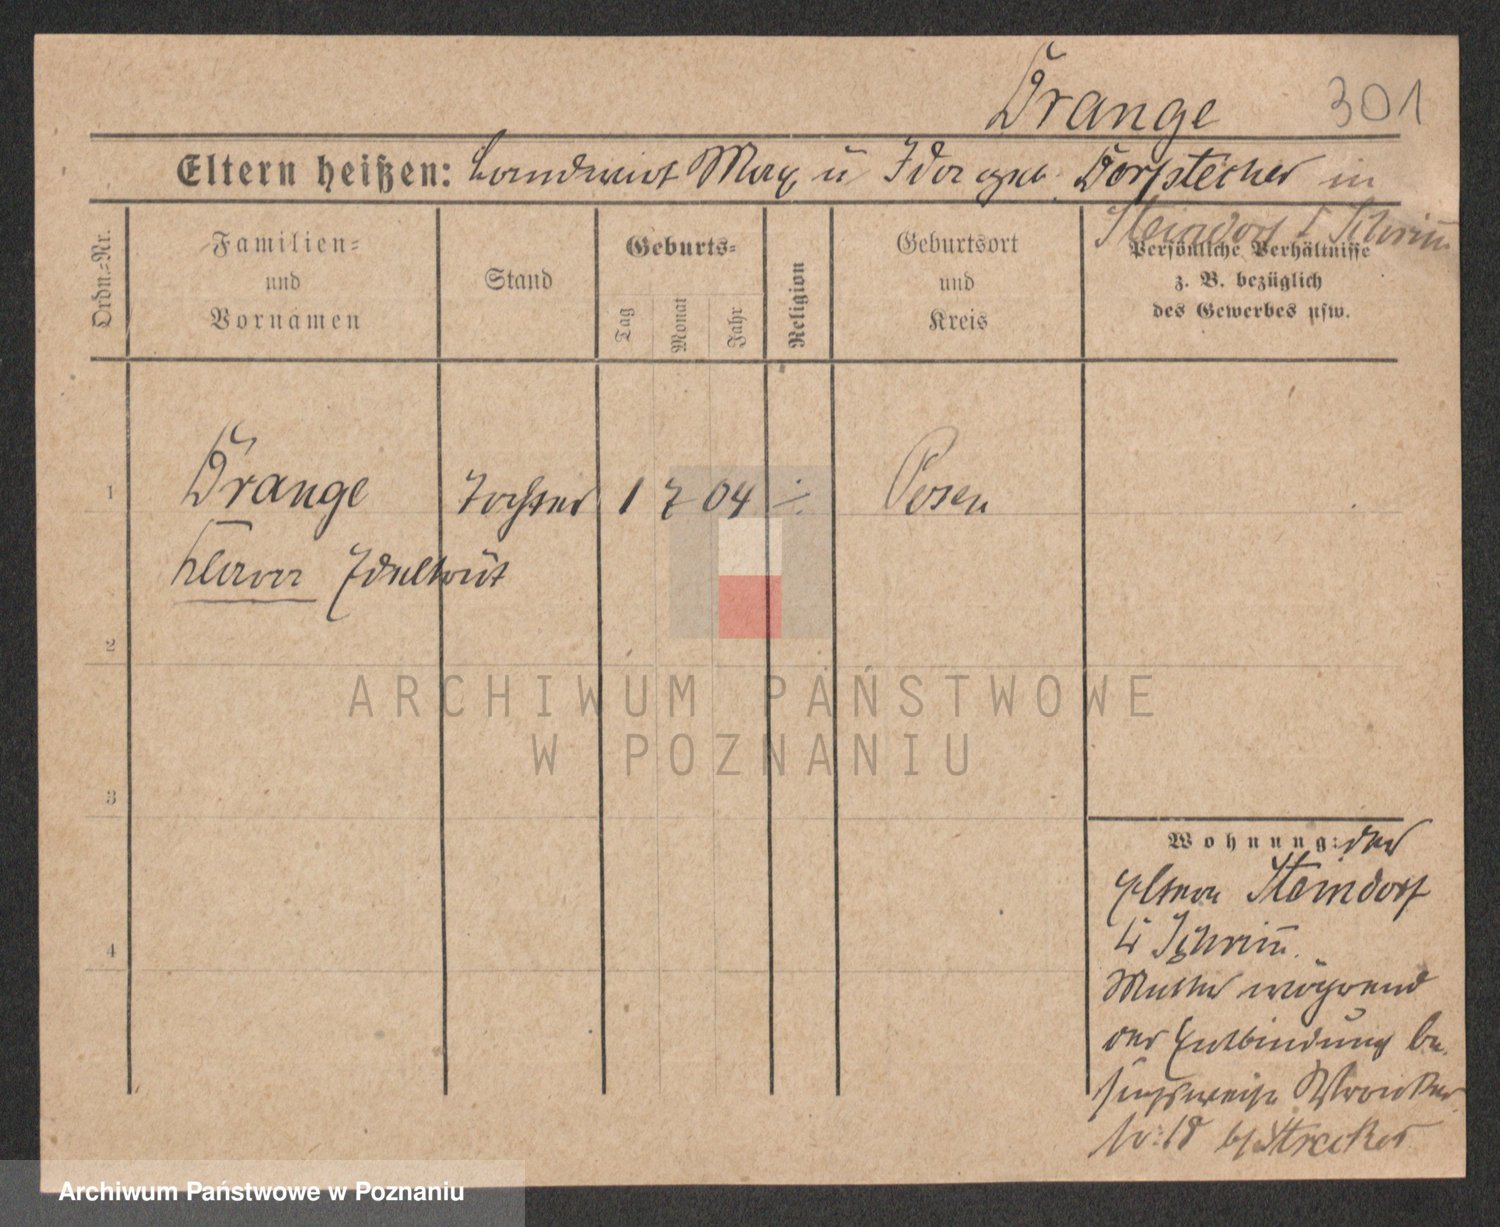 Drange 301
Eltern heißen: Landwirt Max u Ida geb. Dorfstecher in
Steindorf b Schrimm
Ordn.-Nr.
Familien-
und
Vornamen
Stand
Geburts-
Tag
Monat
Jahr
Religion
Geburtsort
und
Kreis
Persönliche Verhältnisse
z. B. bezüglich
des Gewerbes usw.
1 Drange Tochter 1 7 04 ./. Posen
Klara Edeltrut
2
3
4
Wohnung: der
Eltern Steindorf
b Schrimm.
Mutter während
der Entbindung be
suchsweise Wronker
No: 18 bei Strecker
ARCHIWUM PAŃSTWOWE
W POZNANIU
Archiwum Państwowe w Poznaniu